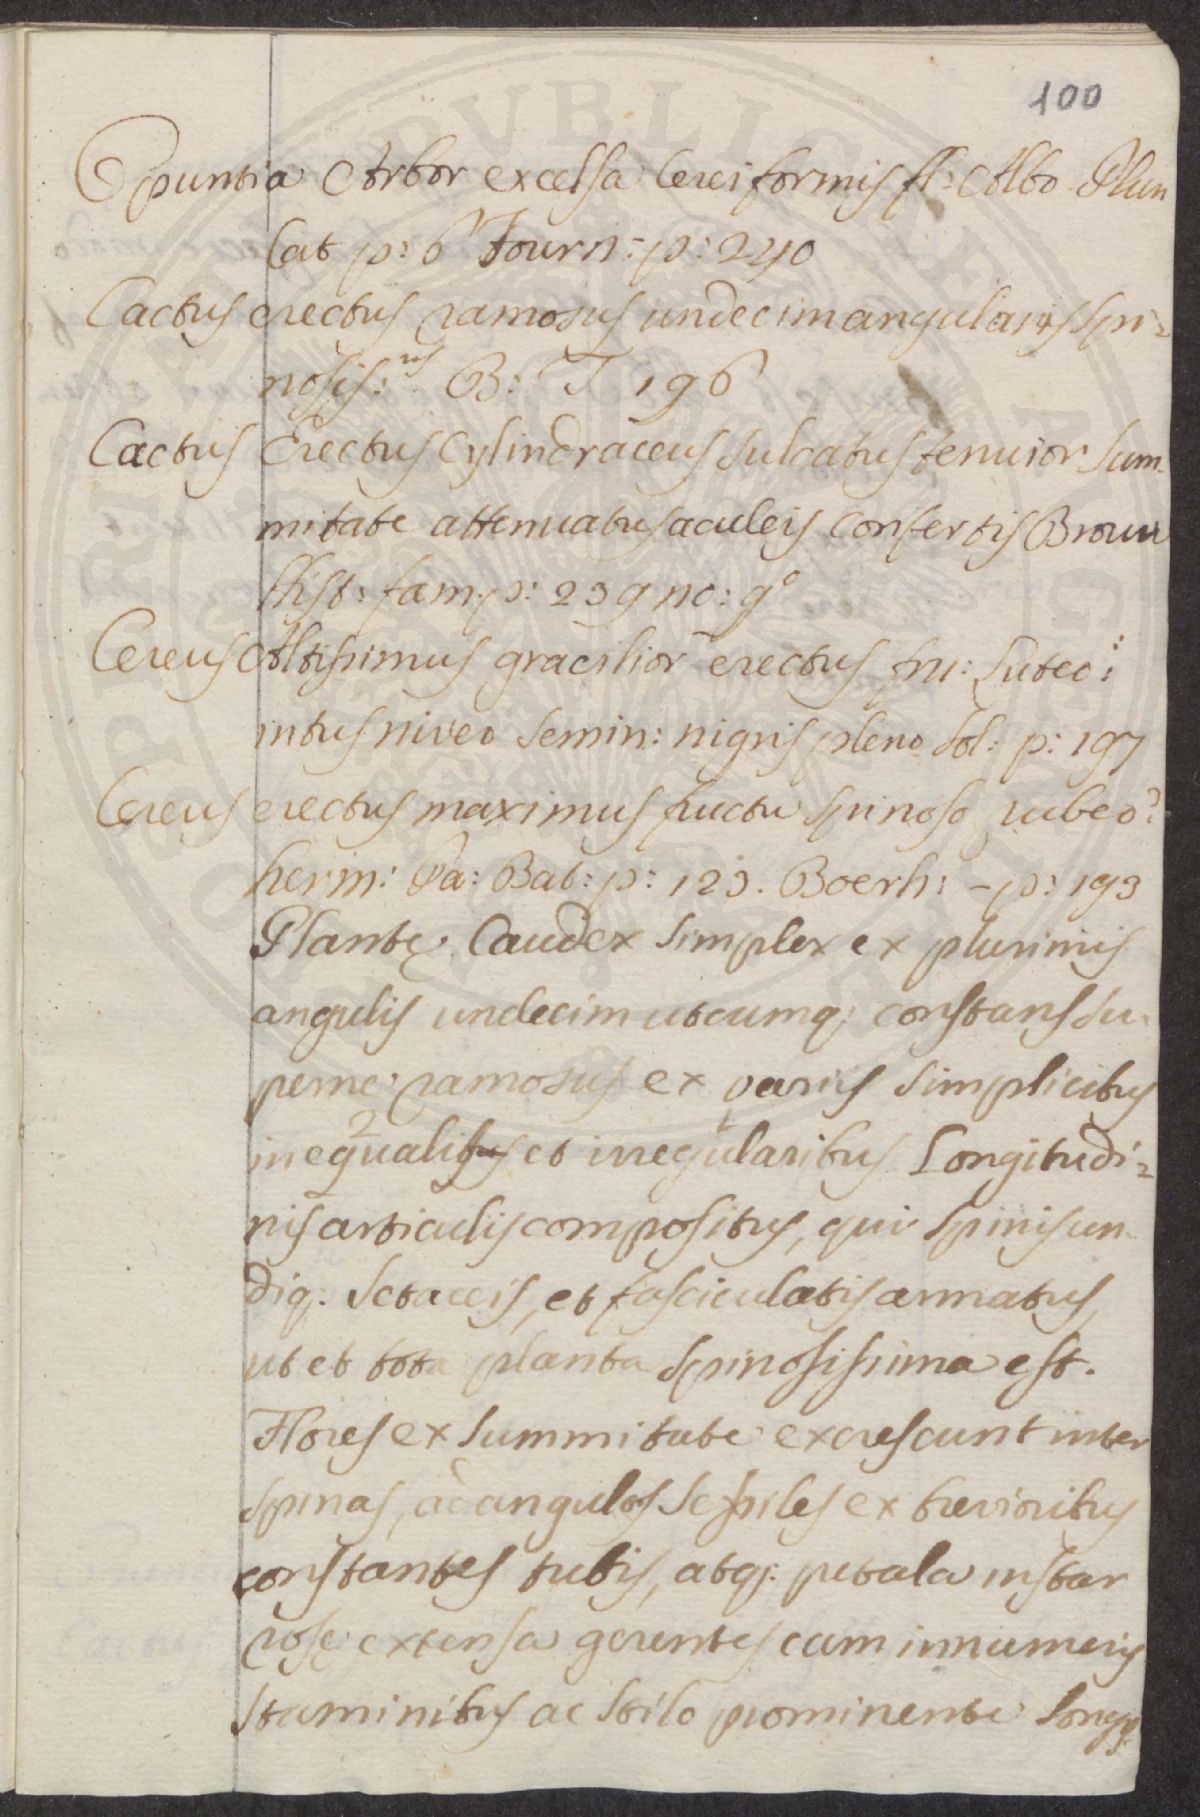 100
Opuntia Arbor excelsa Cereiformis fl: Albo Plum
Cat p: 6 Tourn: p: 240
Cactus erectus ramosus undecimangularis spi-
nosis:us B: T 196
Cactus Erectus Cylindraceus sulcatus tenuior sum-
mitate attenuatus aculeis confertis Brown
Hist: Jam. p: 239 no: 9°
Cereus Altissimus gracilior erectus fru: Luteo:
intus niveo semin: nigris pleno Sl: p: 197
Cereus erectus maximus fructu spinoso rubeo
herm: Pa: Bat: p: 123. Boerh: - p: 193
Plantę Caudex simplex ex plurimis
angulis undecim utcumq; constans su-
perne ramosus ex variis simplicibus
inequalibus et irregularibus Longitudi-
nis articulis compositus, qui spinis un-
diq. setaceis, et fasciculatis armatus,
ut et tota planta spinosissima est.
Flores ex summitate excrescunt inter
spinas, ad angulos sessiles ex brevioribus
constantes tubis, atq;. petala instar
rosę extensa gerentes cum innumeris
staminibus ac stilo prominente